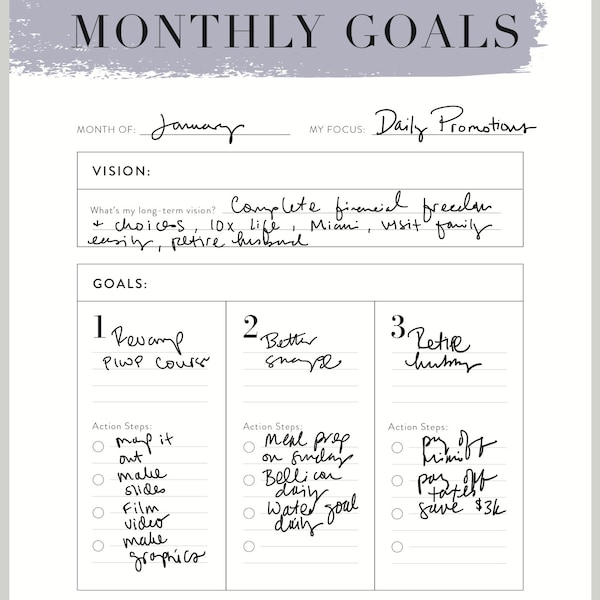 MONTHLY GOALS
MONTH OF: January MY FOCUS: Daily Promotions
VISION:
What's my long-term vision? Complete financial freedom
+ choices, 10x life, Miami, visit family
easily, retire husband
GOALS:
1 Revamp
PIWP Course
Action Steps:
map it
out
make
slides
Film
video
make
graphics
2 Better
shape
Action Steps:
Meal prep
on Sunday
daily
Water goal
daily
3 Retire
hubby
Action Steps:
pay off
pay off
taxes
save $3k